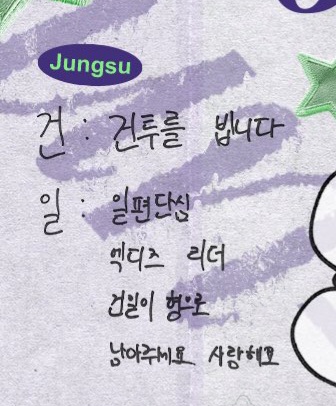 Jungsu
건 : 건투를 빕니다
일 : 일편단심
엑디즈 리더
건일이 형으로
남아주세요 사랑해요